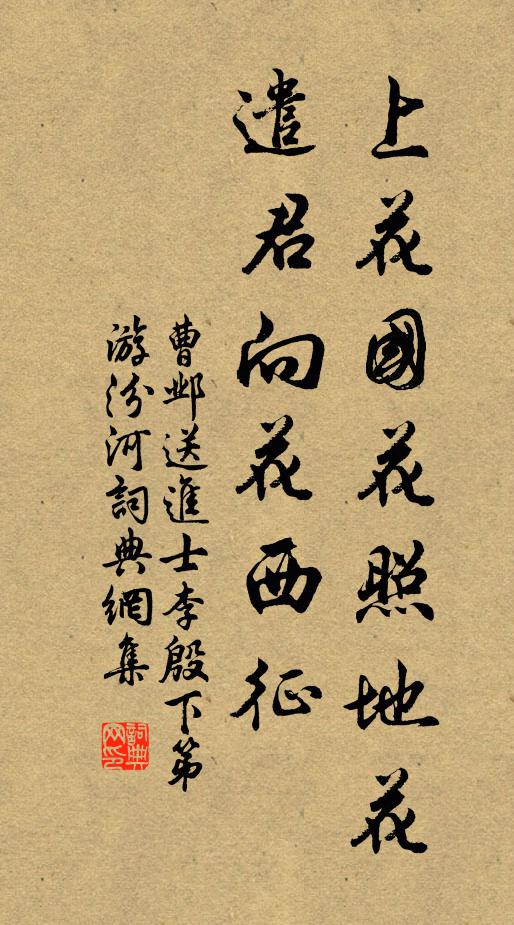 上花國花照地花
遣君向花西征
曹邺送進士李殷下第
游汾河詞典網集
詞典網印